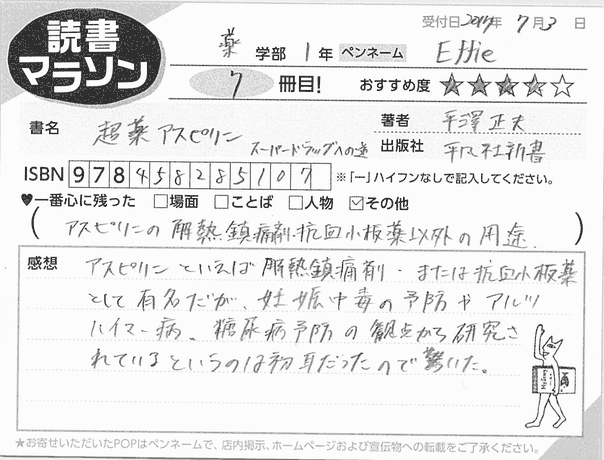 受付日 2017年 7月3日
読書
マラソン
薬 学部 1年 ペンネーム Effie
7 冊目! おすすめ度 ★★★★☆
書名 超薬アスピリン
スーパードラッグへの道
著者 平澤正夫
出版社 平凡社新書
ISBN 978458285107 ※「ー」ハイフンなしで記入してください。
♥一番心に残った □場面 □ことば □人物 ☑その他
(アスピリンの解熱鎮痛剤・抗血小板薬以外の用途.)
感想 アスピリンといえば解熱鎮痛剤・または抗血小板薬
として有名だが、妊娠中毒の予防やアルツ
ハイマー病、糖尿病予防の観点から研究さ
れているというのは初耳だったので驚いた。
★お寄せいただいたPOPはペンネームで、店内掲示、ホームページおよび宣伝物への転載をご了承ください。